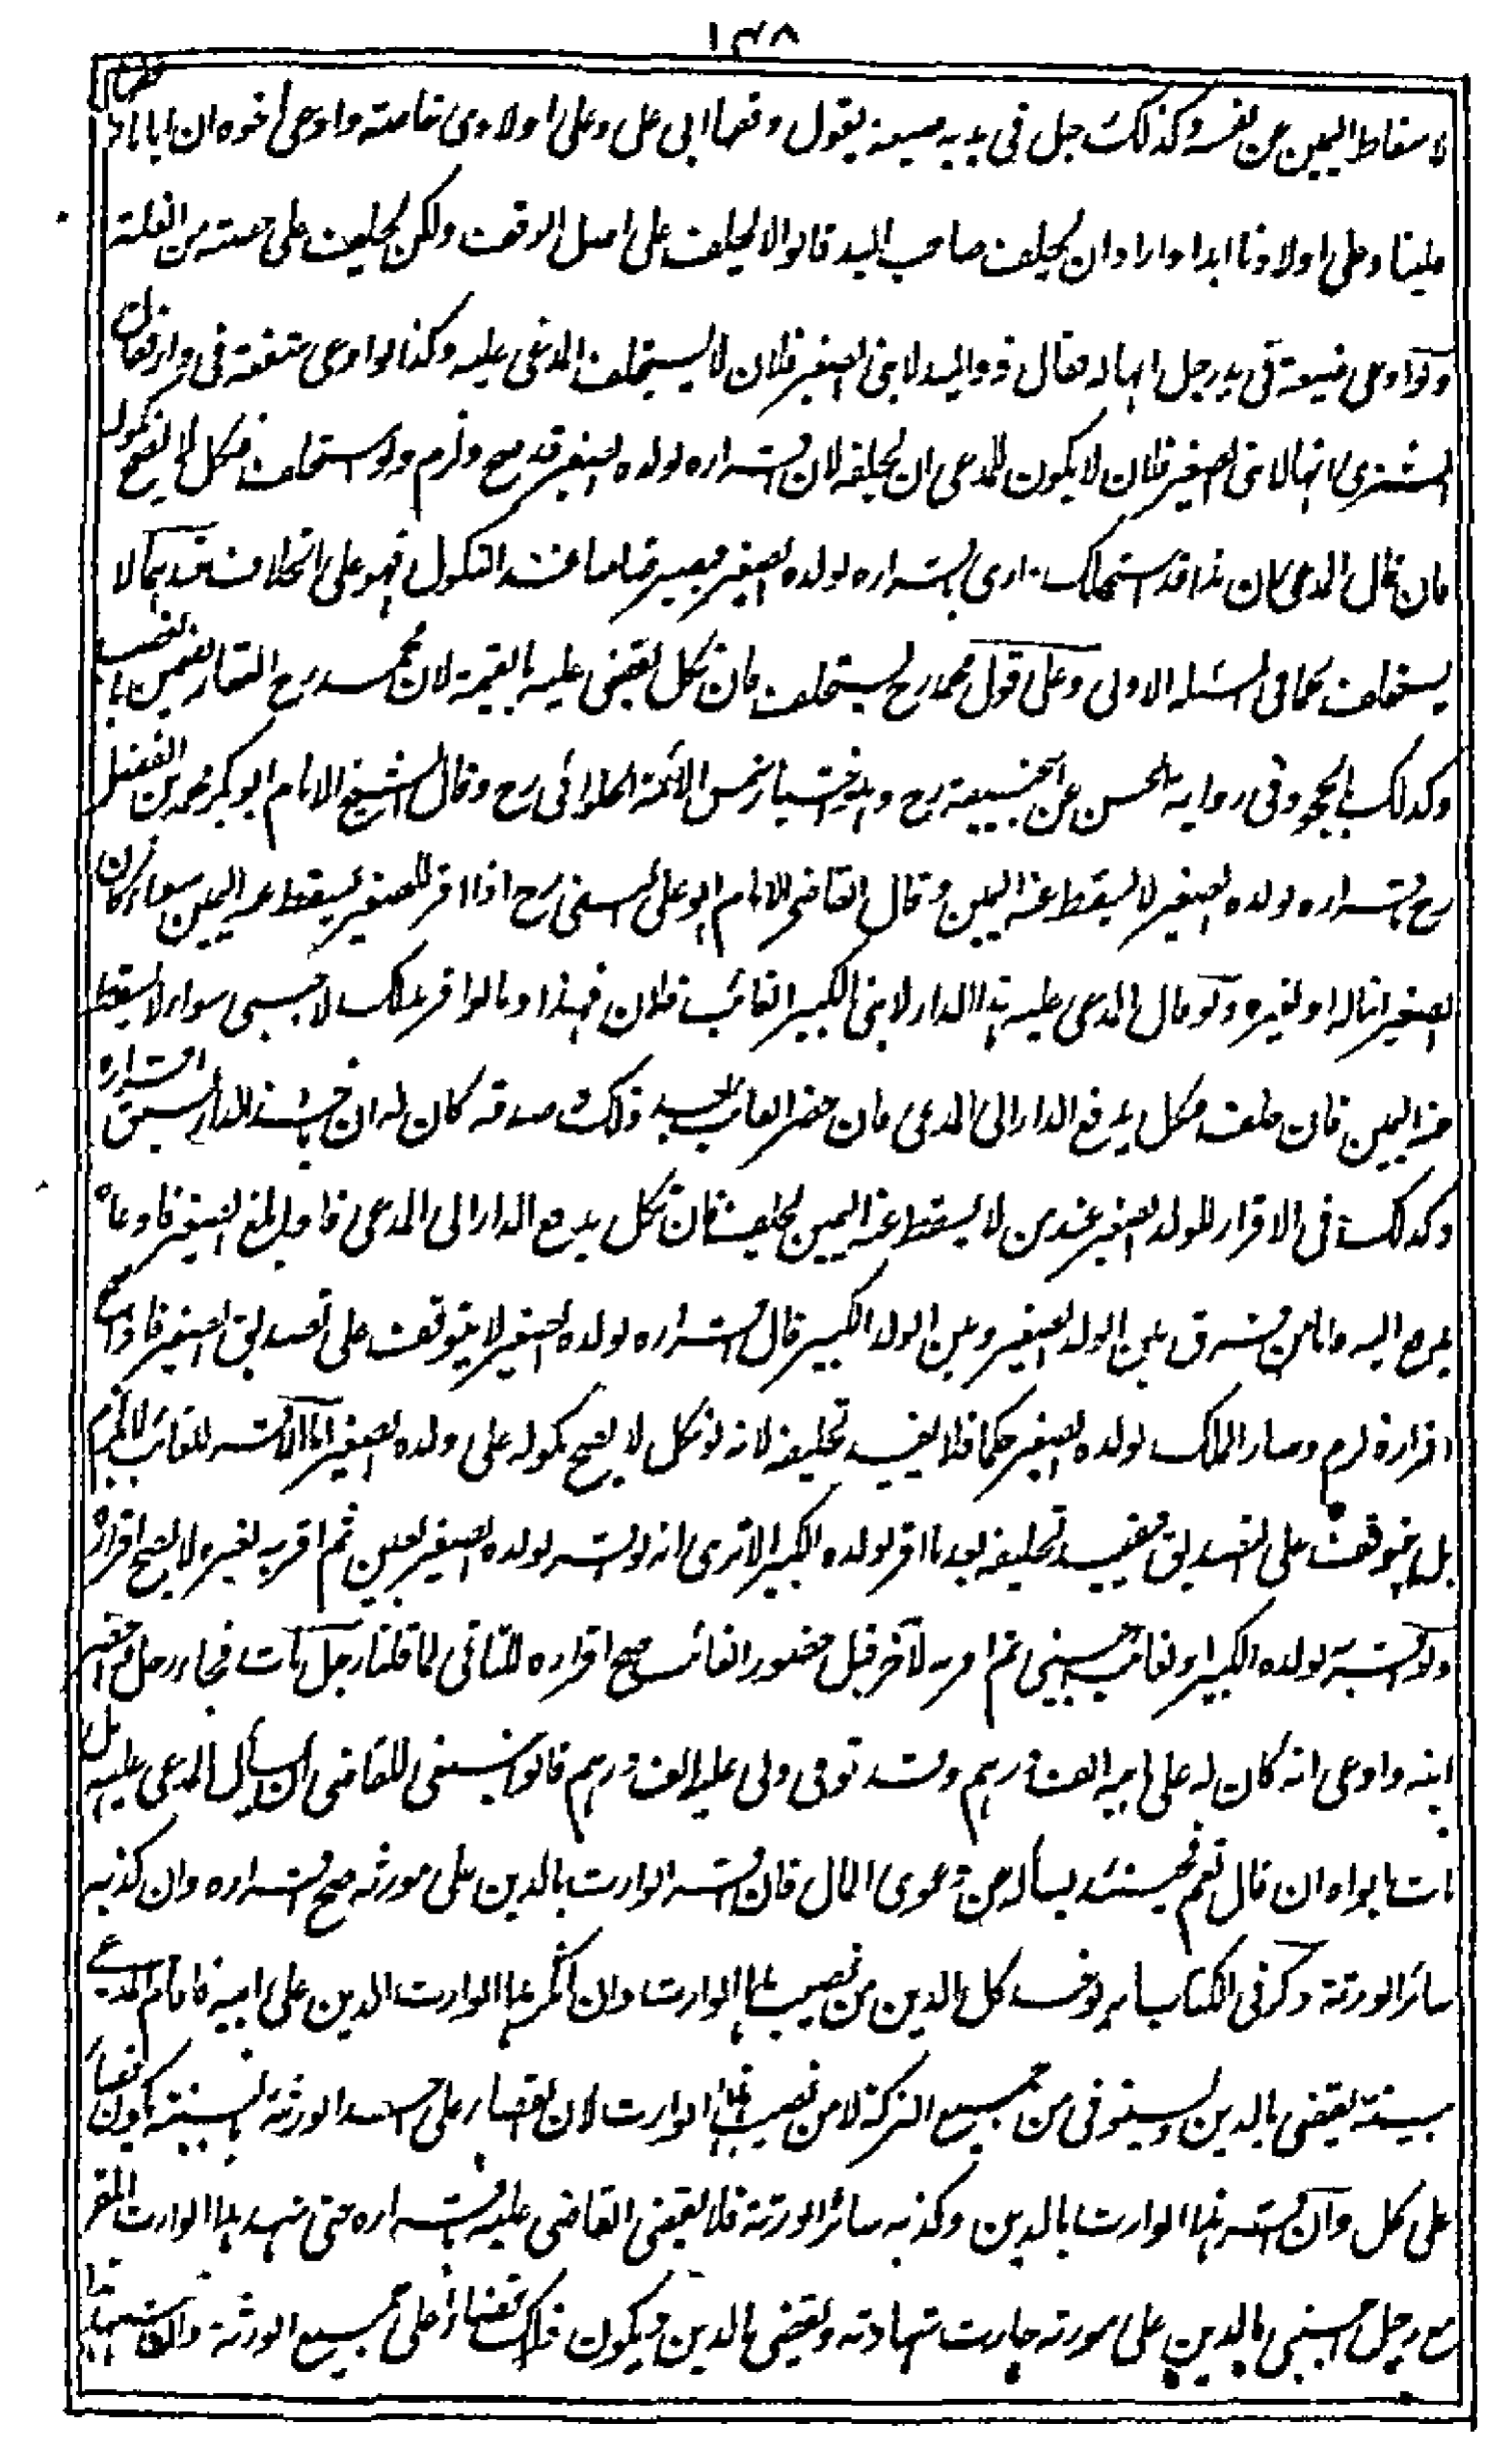 ١٤٨
لاسقاط اليمين عن نفسه وكذلك رجل في يديه ضيعة يقول وقفها ابي علي وعلى اولادي خاصة وادعى اخوه ان ابانا وقفها
علينا وعلى اولادنا ابدا واراد ان يحلف صاحب اليد قالوا لا يحلف على اصل الوقف ولكن يحلف على حصته من الغلة
ولو ادعى ضيعة في يد رجل انها له فقال ذو اليد لابني الصغير فلان لا يستحلف المدعى عليه وكذا لو ادعى شفعة في دار فقال
المشتري انها لابني الصغير فلان لا يكون للمدعي ان يحلفه لان اقراره لولده الصغير قد صح ولزم ولو استحلف فنكل لا يصح نكوله
فان قال المدعي كان هذا قد استهلك داري باقراره لولده الصغير فيصير ضامنا عند النكول فهو على الخلاف عندهما لا
يستحلف كما في المسئلة الاولى وعلى قول محمد رح يستحلف فان نكل يقضى عليه بالقيمة لان عند محمد رح العقار يضمن بالغصب
وكذلك بالجحود في رواية الحسن عن ابي حنيفة رح وبه اختيار شمس الائمة الحلوائي رح وقال الشيخ الامام ابو بكر محمد بن الفضل
رح باقراره لولده الصغير لا يسقط عنه اليمين وقال القاضي الامام ابو علي النسفي رح اذا اقر للصغير يسقط عنه اليمين سواء كان
الصغير ابنا له او لغيره ولو قال المدعى عليه هذا الدار لابني الكبير الغائب فلان فهذا وما لو اقر بملك لاجنبي سواء لا يسقط
عنه اليمين فان حلف فنكل يدفع الدار الى المدعي فان حضر الغائب بعد ذلك وصدقه كان له ان ياخذ الدار لسبق اقراره
وكذلك في الاقرار للولد الصغير عند من لا يسقط عنه اليمين يحلف فان نكل يدفع الدار الى المدعي فاذا بلغ الصغير فادعاه
يدفع اليه فاما من فرق بين الولد الصغير وبين الولد الكبير قال اقراره لولده الصغير لا يتوقف على تصديق الصغير فاذا صح
اقراره لزم وصار الملك لولده الصغير حكما فلا يفيد تحليفه لانه لو نكل لا يصح نكوله على ولده الصغير اما الاقرار للغائب لا يلزم
بل يتوقف على التصديق فيفيد تحليفه بعد ما اقر لولده الكبير الا ترى انه لو اقر لولده الصغير بعين ثم اقر به لغيره لا يصح اقراره
ولو اقر به لولده الكبير او لغائب اجنبي ثم اقر به لآخر قبل حضور الغائب صح اقراره للثاني لما قلنا رجل مات فجاء رجل واحضر
ابنه وادعى انه كان له على ابيه الف درهم وقد توفي ولي عليه الف درهم قالوا ينبغي للقاضي ان يسأل المدعى عليه هل
مات ابوه ان قال نعم فحينئذ يسأله عن دعوى المال فان اقر الوارث بالدين على مورثه صح اقراره وان كذبه
سائر الورثة ذكر في الكتاب انه يؤخذ كل الدين من نصيب هذا الوارث وان انكر هذا الوارث الدين على ابيه فاقام المدعي
بينة يقضى بالدين ويستوفى من جميع التركة لا من نصيب هذا الوارث لان القضاء على احد الورثة بالبينة يكون قضاء
على الكل وان اقر هذا الوارث بالدين وكذبه سائر الورثة فلا يقضي القاضي عليه باقراره حتى شهد هذا الوارث المقر
مع رجل اجنبي بالدين على مورثه جازت شهادته ويقضى بالدين ويكون ذلك قضاء على جميع الورثة وان شهد هذا